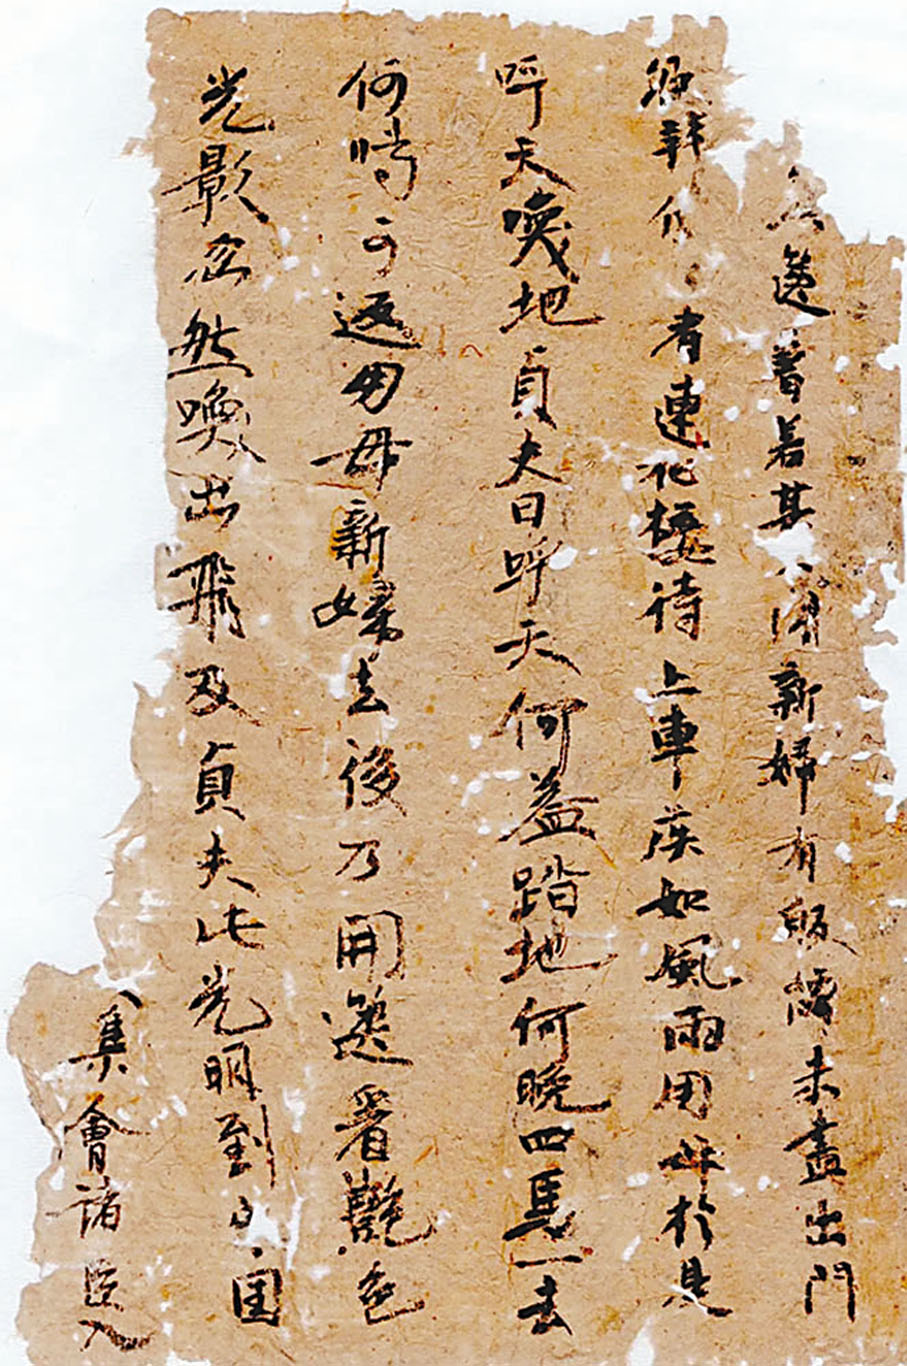 篋著若其開新婦有皈語未盡出門
辞者連化接待上車疾如風雨用母於是
呼天喚地貞夫曰呼天何益踏地何晚四馬一去
何時可返用母新婦去後乃開篋看艶色
光影忽然喚出飛及貞夫此光明到国
集會諸臣入